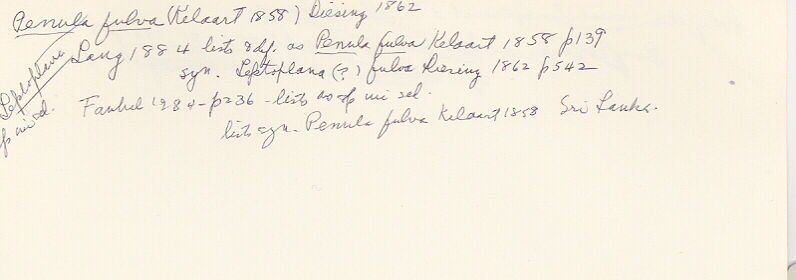 Penula fulva (Kelaart 1858) Diesing 1862
Leptoplana
sp inised.
Lang 1884 lists & df. as Penula fulva Kelaart 1858 p139
syn. Leptoplana (?) fulva Diesing 1862 p542
Faubel 1984 - p236 - lists as sp ini sed.
lists syn. Penula fulva Kelaart 1858 Sri Lanka.